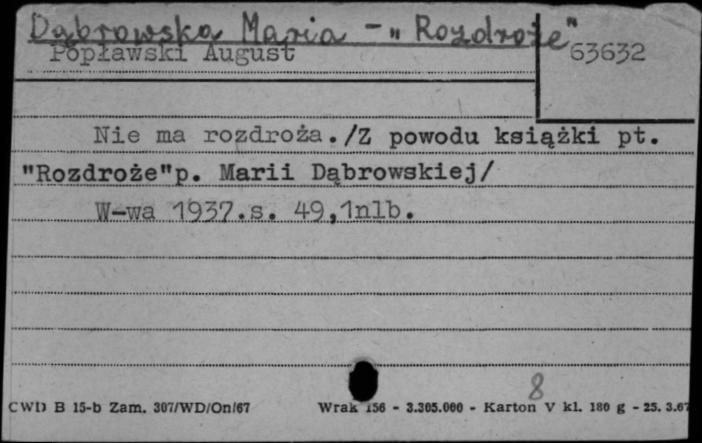 Dąbrowska Maria - "Rozdroże"
Popławski August 63632
Nie ma rozdroża./Z powodu książki pt.
"Rozdroże"p. Marii Dąbrowskiej/
W-wa 1937.s. 49,1nlb.
8
CWD B 15-b Zam. 307/WD/On/67 Wrak 156 - 3.305.000 - Karton V kl. 180 g - 25. 3.67